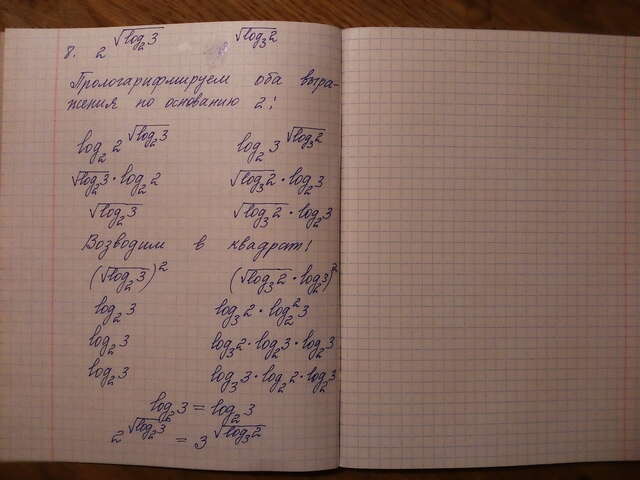 8. 2^√(log₂3) √(log₃2)
Прологарифмируем оба выра-
жения по основанию 2:
log₂ 2^√(log₂3) log₂ 3^√(log₃2)
√(log₂3) · log₂2 √(log₃2) · log₂3
√(log₂3) √(log₃2) · log₂3
Возводим в квадрат!
(√(log₂3))² (√(log₃2) · log₂3)²
log₂3 log₃2 · log₂²3
log₂3 log₃2 · log₂3 · log₂3
log₂3 log₃3 · log₂2 · log₂3
log₂3 = log₂3
2^√(log₂3) = 3^√(log₃2)